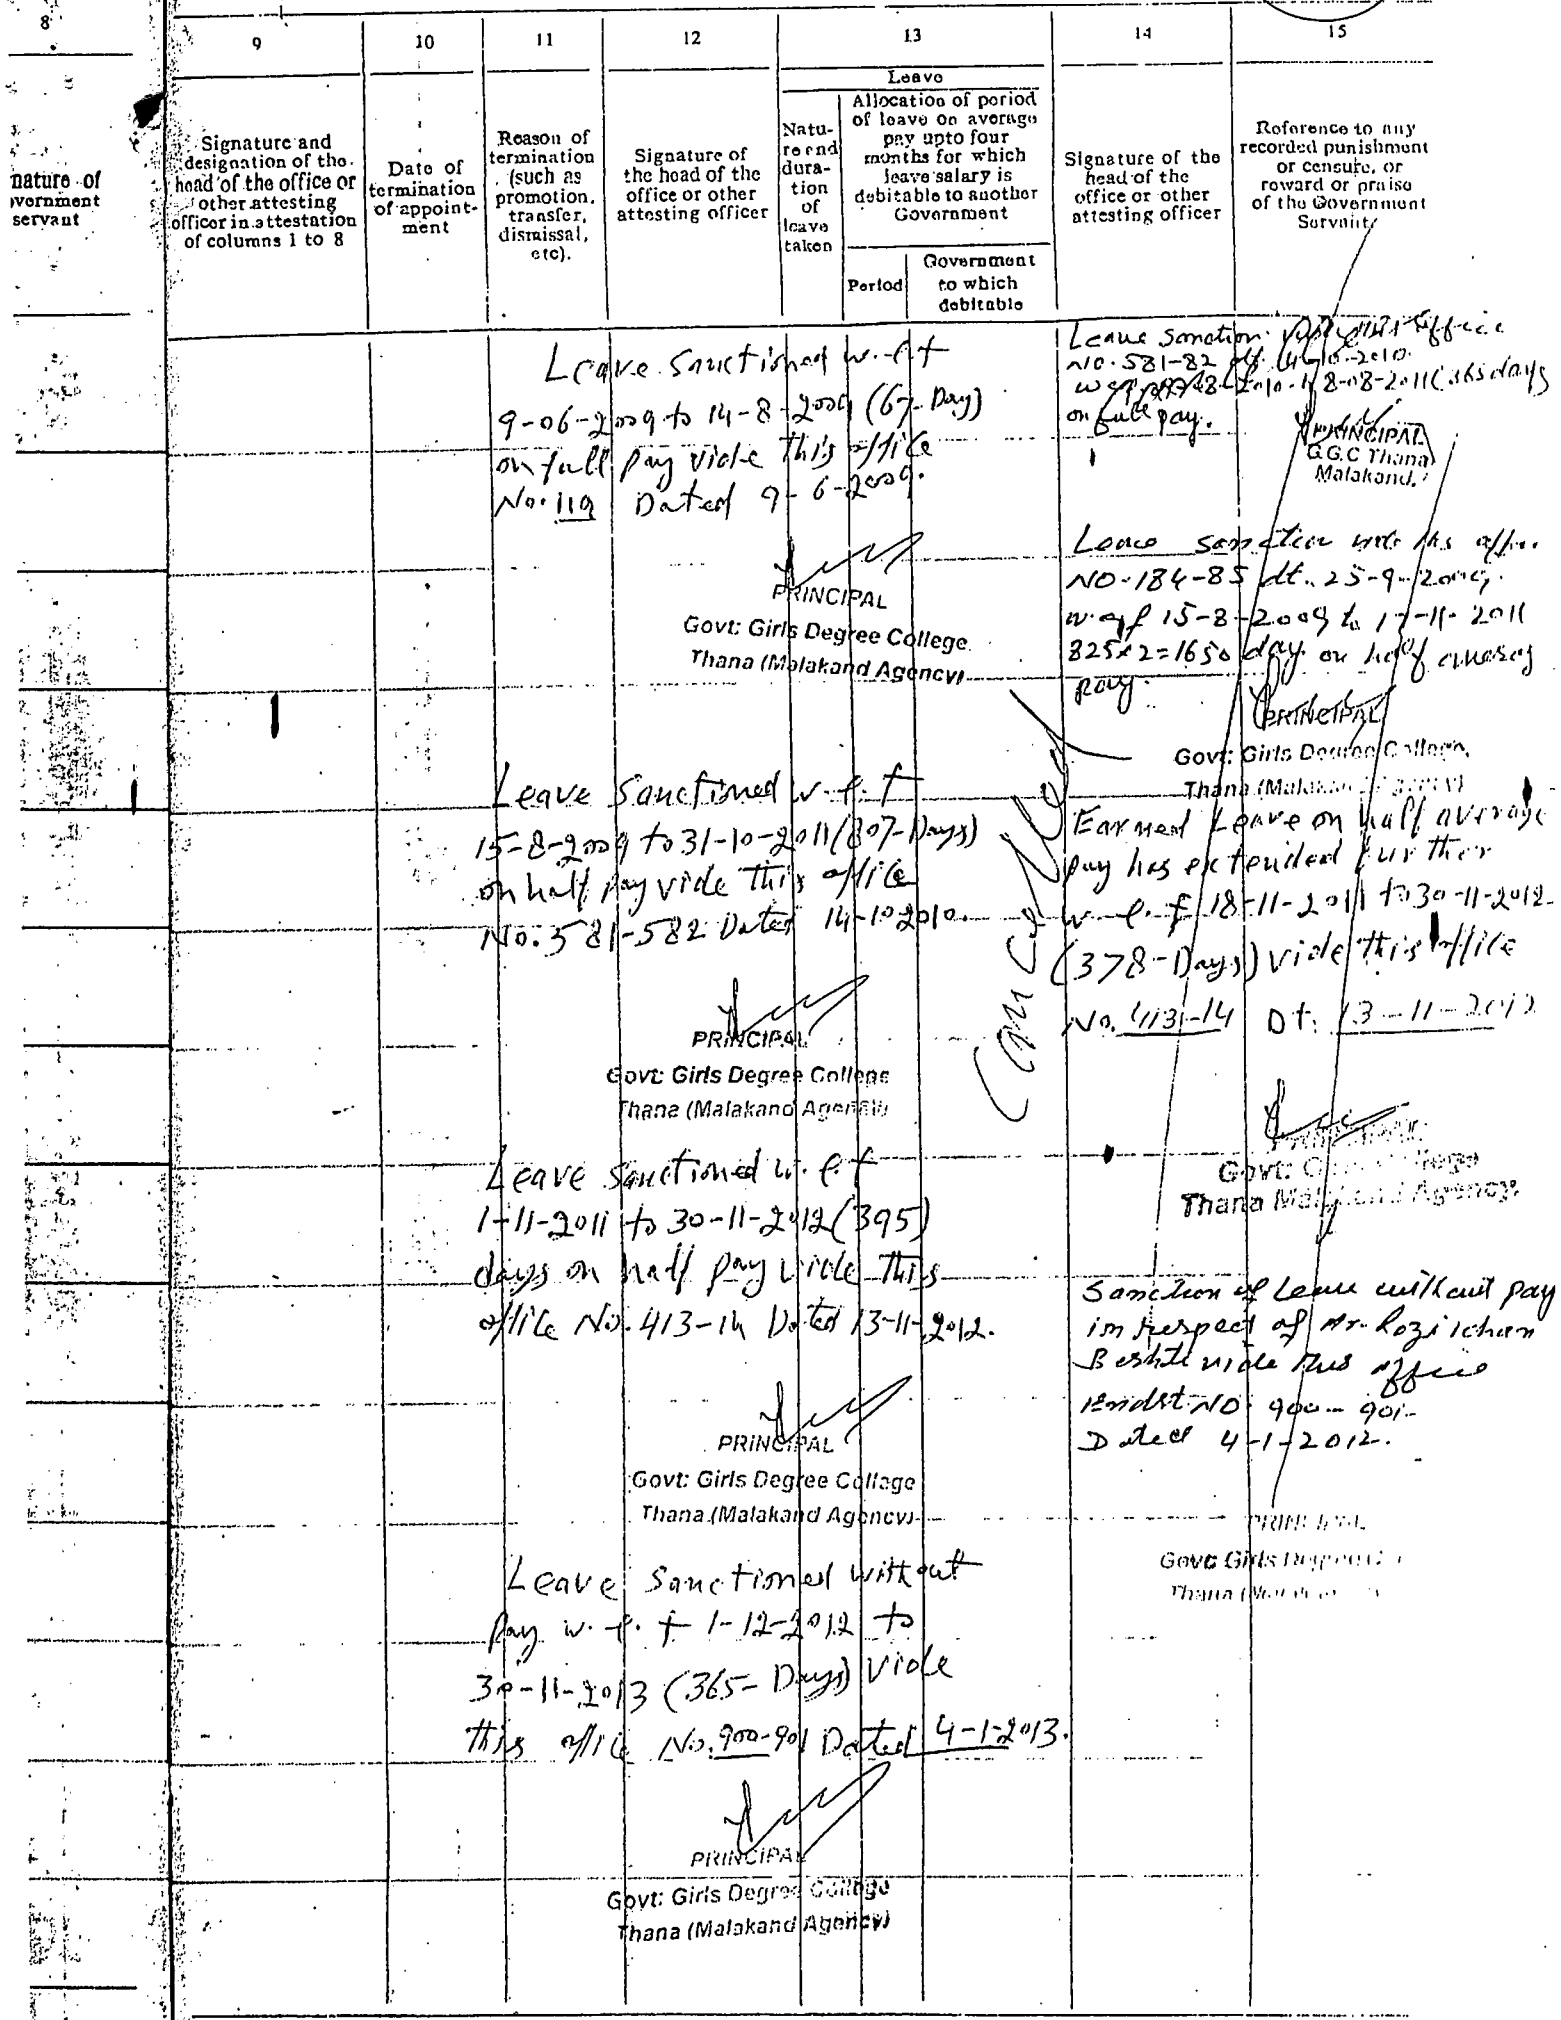 8
9
10
11
12
13
14
15
nature of
vernment
servant
Signature and
designation of the
head of the office or
other attesting
officer in attestation
of columns 1 to 8
Date of
termination
of appoint-
ment
Reason of
termination
(such as
promotion,
transfer,
dismissal,
etc).
Signature of
the head of the
office or other
attesting officer
Leave
Natu-
re end
dura-
tion
of
leave
taken
Allocation of period
of leave on average
pay upto four
months for which
leave salary is
debitable to another
Government
Period
Government
to which
debitable
Signature of the
head of the
office or other
attesting officer
Reference to any
recorded punishment
or censure, or
reward or praise
of the Government
Servant
Leave Sanctioned w.e.f
9-06-2009 to 14-8-2009 (67-Day)
on full pay vide this office
No. 119 Dated 9-6-2009.
PRINCIPAL
Govt: Girls Degree College
Thana (Malakand Agency)
Leave Sanctioned w.e.f
15-8-2009 to 31-10-2011 (807-Days)
on half pay vide this office
No. 581-582 Dated 14-10-2010.
PRINCIPAL
Govt: Girls Degree College
Thana (Malakand Agency)
Leave Sanctioned w.e.f
1-11-2011 to 30-11-2012 (395)
days on half pay vide this
office No. 413-14 Dated 13-11-2012.
PRINCIPAL
Govt: Girls Degree College
Thana (Malakand Agency)
Leave Sanctioned without
pay w.e.f 1-12-2012 to
30-11-2013 (365-Days) vide
this office No. 900-901 Dated 4-1-2013.
PRINCIPAL
Govt: Girls Degree College
Thana (Malakand Agency)
Cancelled
Leave sanction office
NO. 581-82
2010 8-08-2011 (365 days
on full pay.
PRINCIPAL
G.G.C Thana
Malakand.
Leave sanction vide this office
NO-184-85 dt. 25-9-2009.
w.e.f 15-8-2009 to 17-11-2011
825x2=1650 day on half
pay.
PRINCIPAL
Govt: Girls Degree College,
Thana (Malakand Agency)
Earned Leave on half average
pay has extended further
w.e.f 18-11-2011 to 30-11-2012
(378-Days) vide this office
No. 413-14 Dt. 13-11-2012
Govt: College
Thana Malakand Agency.
Sanction of Leave without pay
in respect of Mr.
vide this office
Endst NO 900-901-
Dated 4-1-2012.
PRINCIPAL
Govt: Girls Degree
Thana